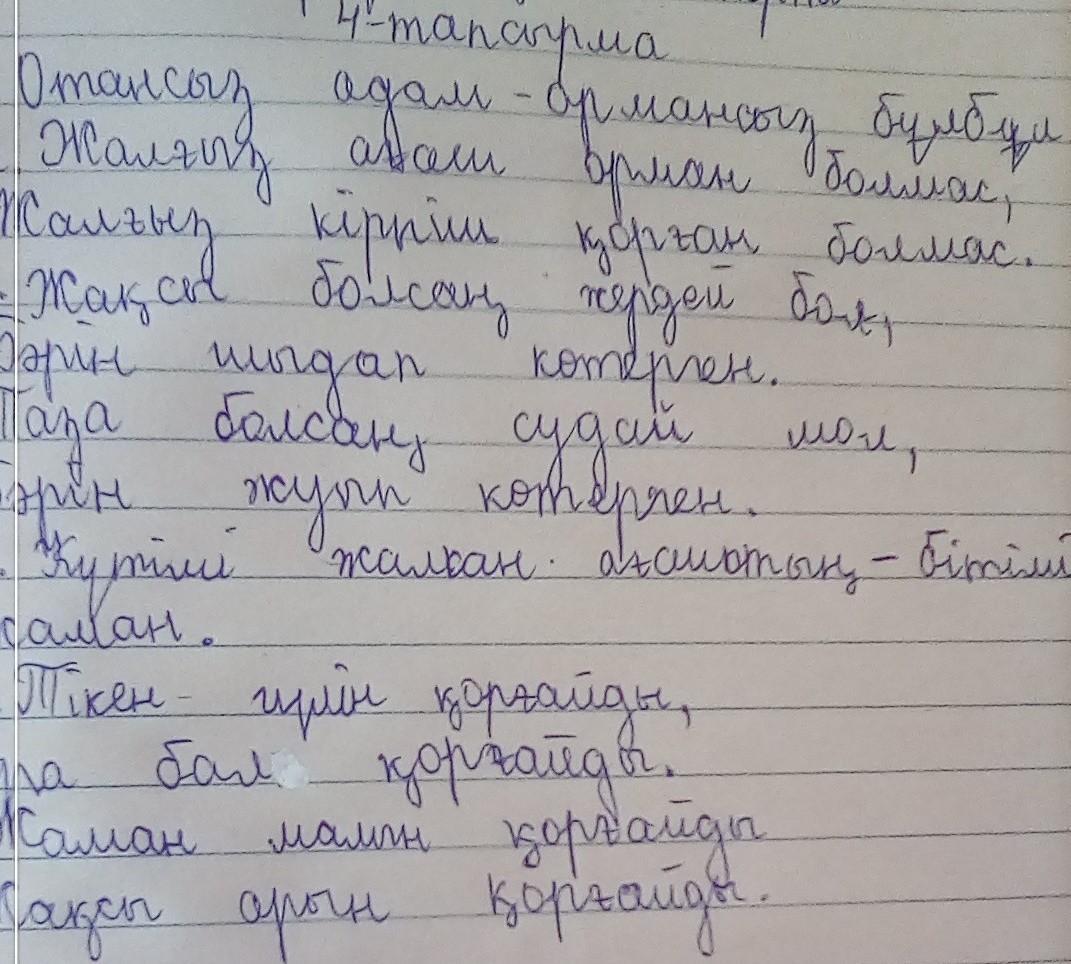 4-тапсырма
Отансыз адам - ормансыз бұлбұл
Жалғыз ағаш орман болмас,
Жалғыз кірпіш қорған болмас.
Жақсы болсаң жердей бол,
Бәрін шыдап көтерген.
Таза болсаң, судай мол,
Бәрін жуып кетерген.
Күтімі жалған ағаштың - бітімі
саман.
Тікен - гүлін қорғайды,
ара бал қорғайды.
Жаман малын қорғайды
Жақсы арын қорғайды.